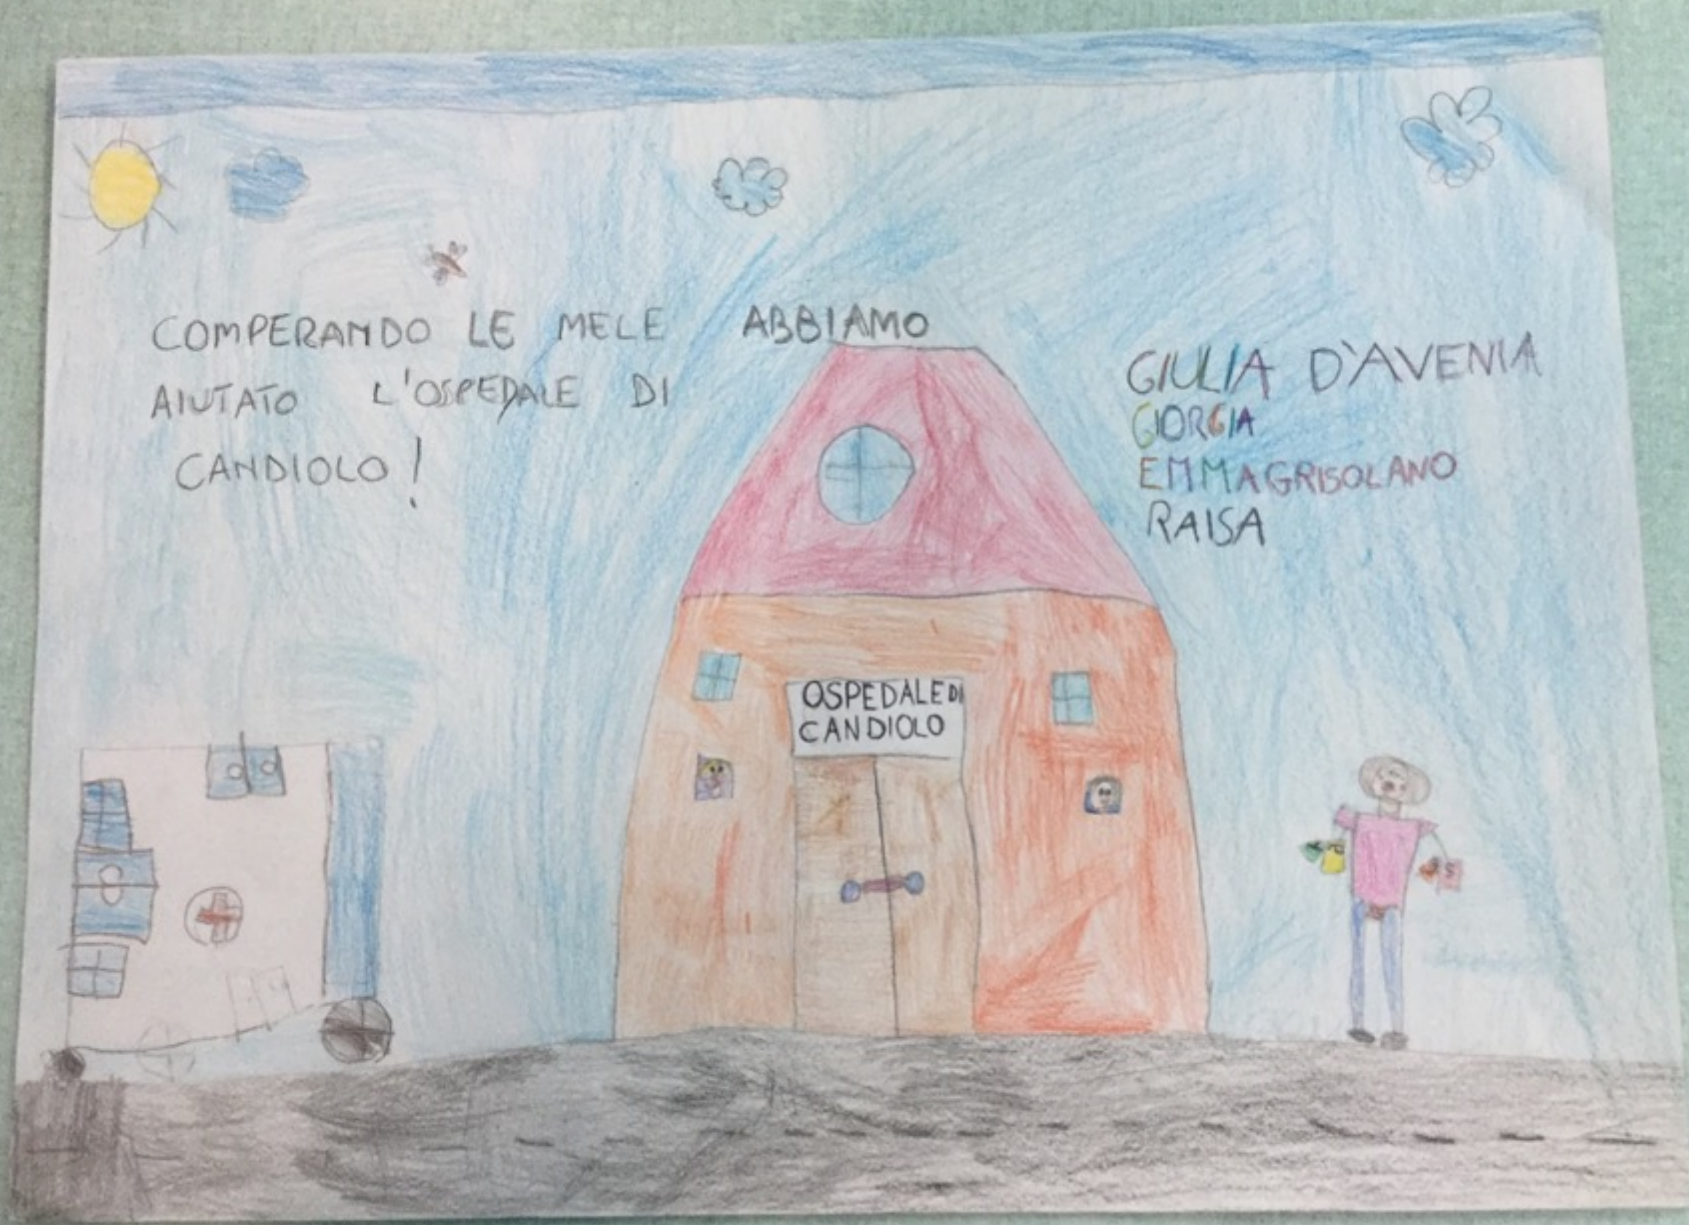 COMPERANDO LE MELE ABBIAMO
AIUTATO L'OSPEDALE DI
CANDIOLO!
GIULIA D'AVENIA
GIORGIA
EMMAGRISOLANO
RAISA
OSPEDALE DI
CANDIOLO